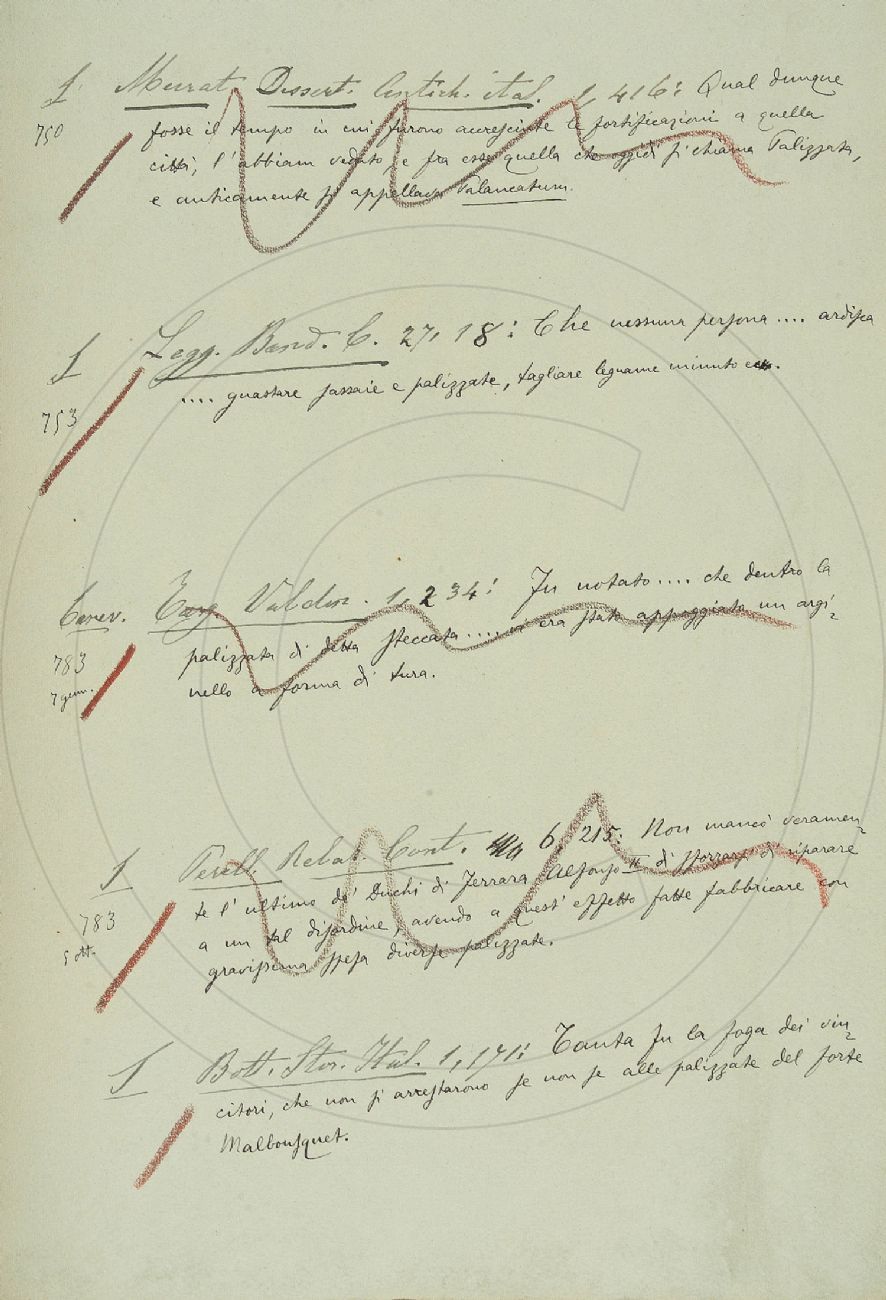 S Murat. Dissert. Antich. ital. 1, 416: Qual dunque
750 fosse il tempo in cui furono accresciute le fortificazioni a quella
città, l'abbiam veduto, e fra esse quella che oggidì si chiama Palizzata,
e anticamente si appellava Palancatum.
S Legg. Band. C. 27, 18: Che nessuna persona .... ardisca
753 .... guastare sassaie e palizzate, tagliare legname minuto ec.
Targ. Valdin. 1, 234: Fu notato .... che dentro la
783 palizzata di detta steccata .... era stato appoggiato un argi-
7 genn. nello a forma di tura.
S Perell. Relaz. Cont. 6, 215: Non mancò veramen-
783 te l'ultimo de' Duchi di Ferrara Alfonso II di sforzarsi di riparare
5 ott. a un tal disordine, avendo a quest'effetto fatte fabbricare con
gravissima spesa diverse palizzate.
S Bott. Stor. Ital. 1, 171: Tanta fu la foga dei vin-
citori, che non si arrestarono se non se alle palizzate del forte
Malbousquet.